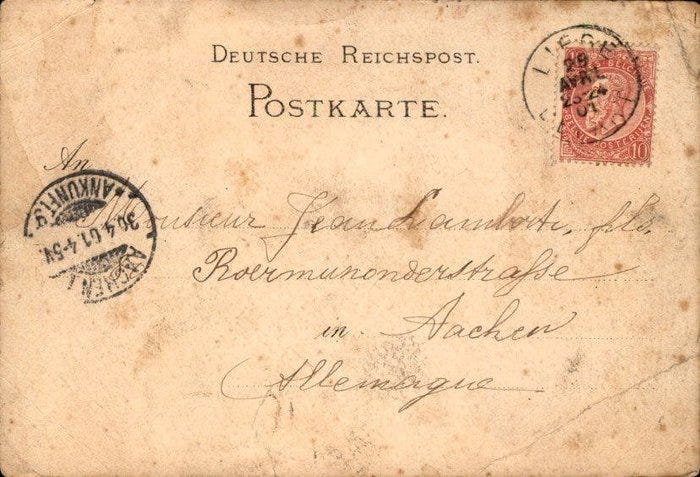 DEUTSCHE REICHSPOST.
POSTKARTE.
LIEGE
29
AVRIL
23-24
01
10
An
Monsieur Jean Lamberti, fils
Roermunonderstrasse
in Aachen
Allemagne
AACHEN 1
30.4.01.4-5V.
ANKUNFT.